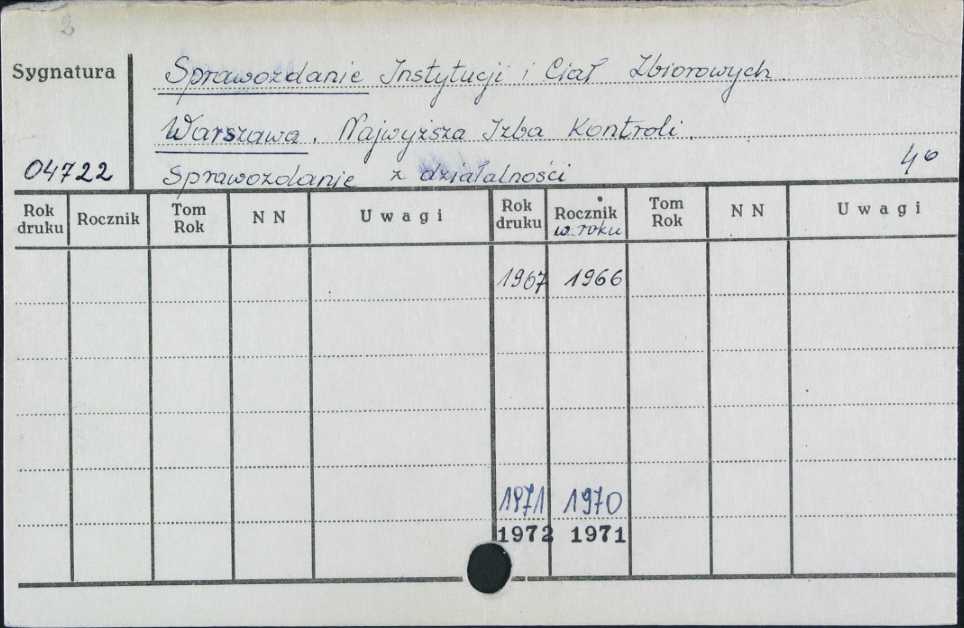 2
Sygnatura
Sprawozdanie Instytucji i Ciał Zbiorowych.
Warszawa. Najwyższa Izba Kontroli.
04722
Sprawozdanie z działalności
4°
Rok druku Rocznik Tom Rok N N Uwagi Rok druku Rocznik w roku Tom Rok N N Uwagi
1967 1966
1971 1970
1972 1971